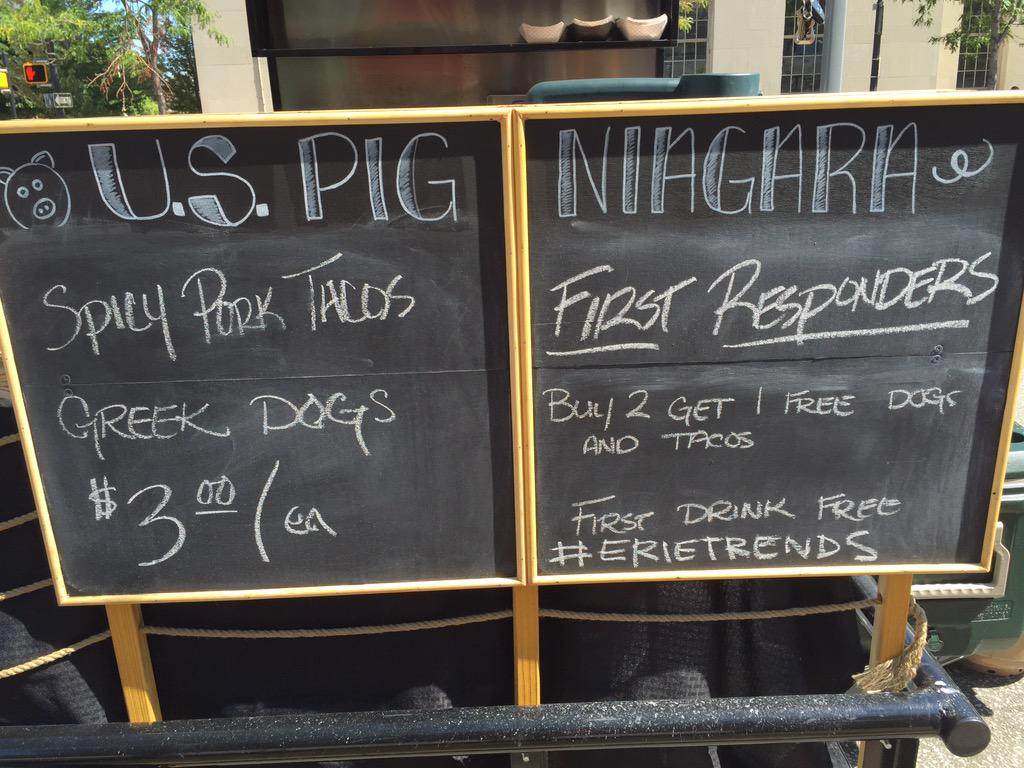 U.S. PIG
SPICY PORK TACOS
GREEK DOGS
$3.00/ea
NIAGARA
FIRST RESPONDERS
BUY 2 GET 1 FREE DOGS
AND TACOS
FIRST DRINK FREE
#ERIETRENDS